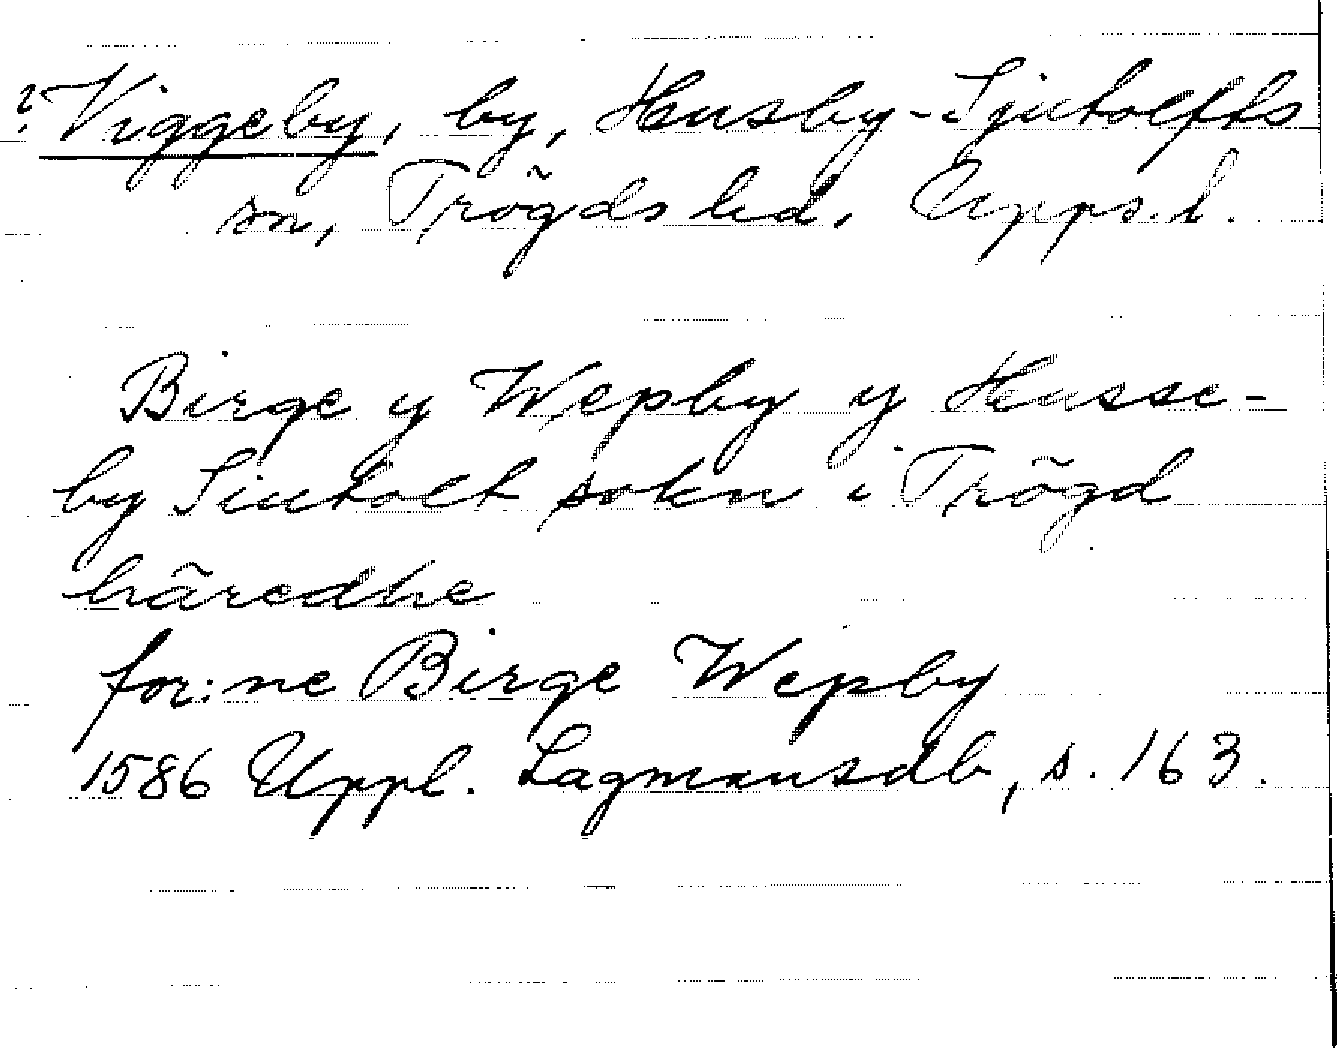 ? Viggeby, by, Husby-Sjutolfts
sn, Trögds hd. Upps.l.
Birge y Wepby y Husse-
by Siutolt sokn i Trögd
häredhe
for:ne Birge Wepby
1586 Uppl. Lagmansdb, s. 163.